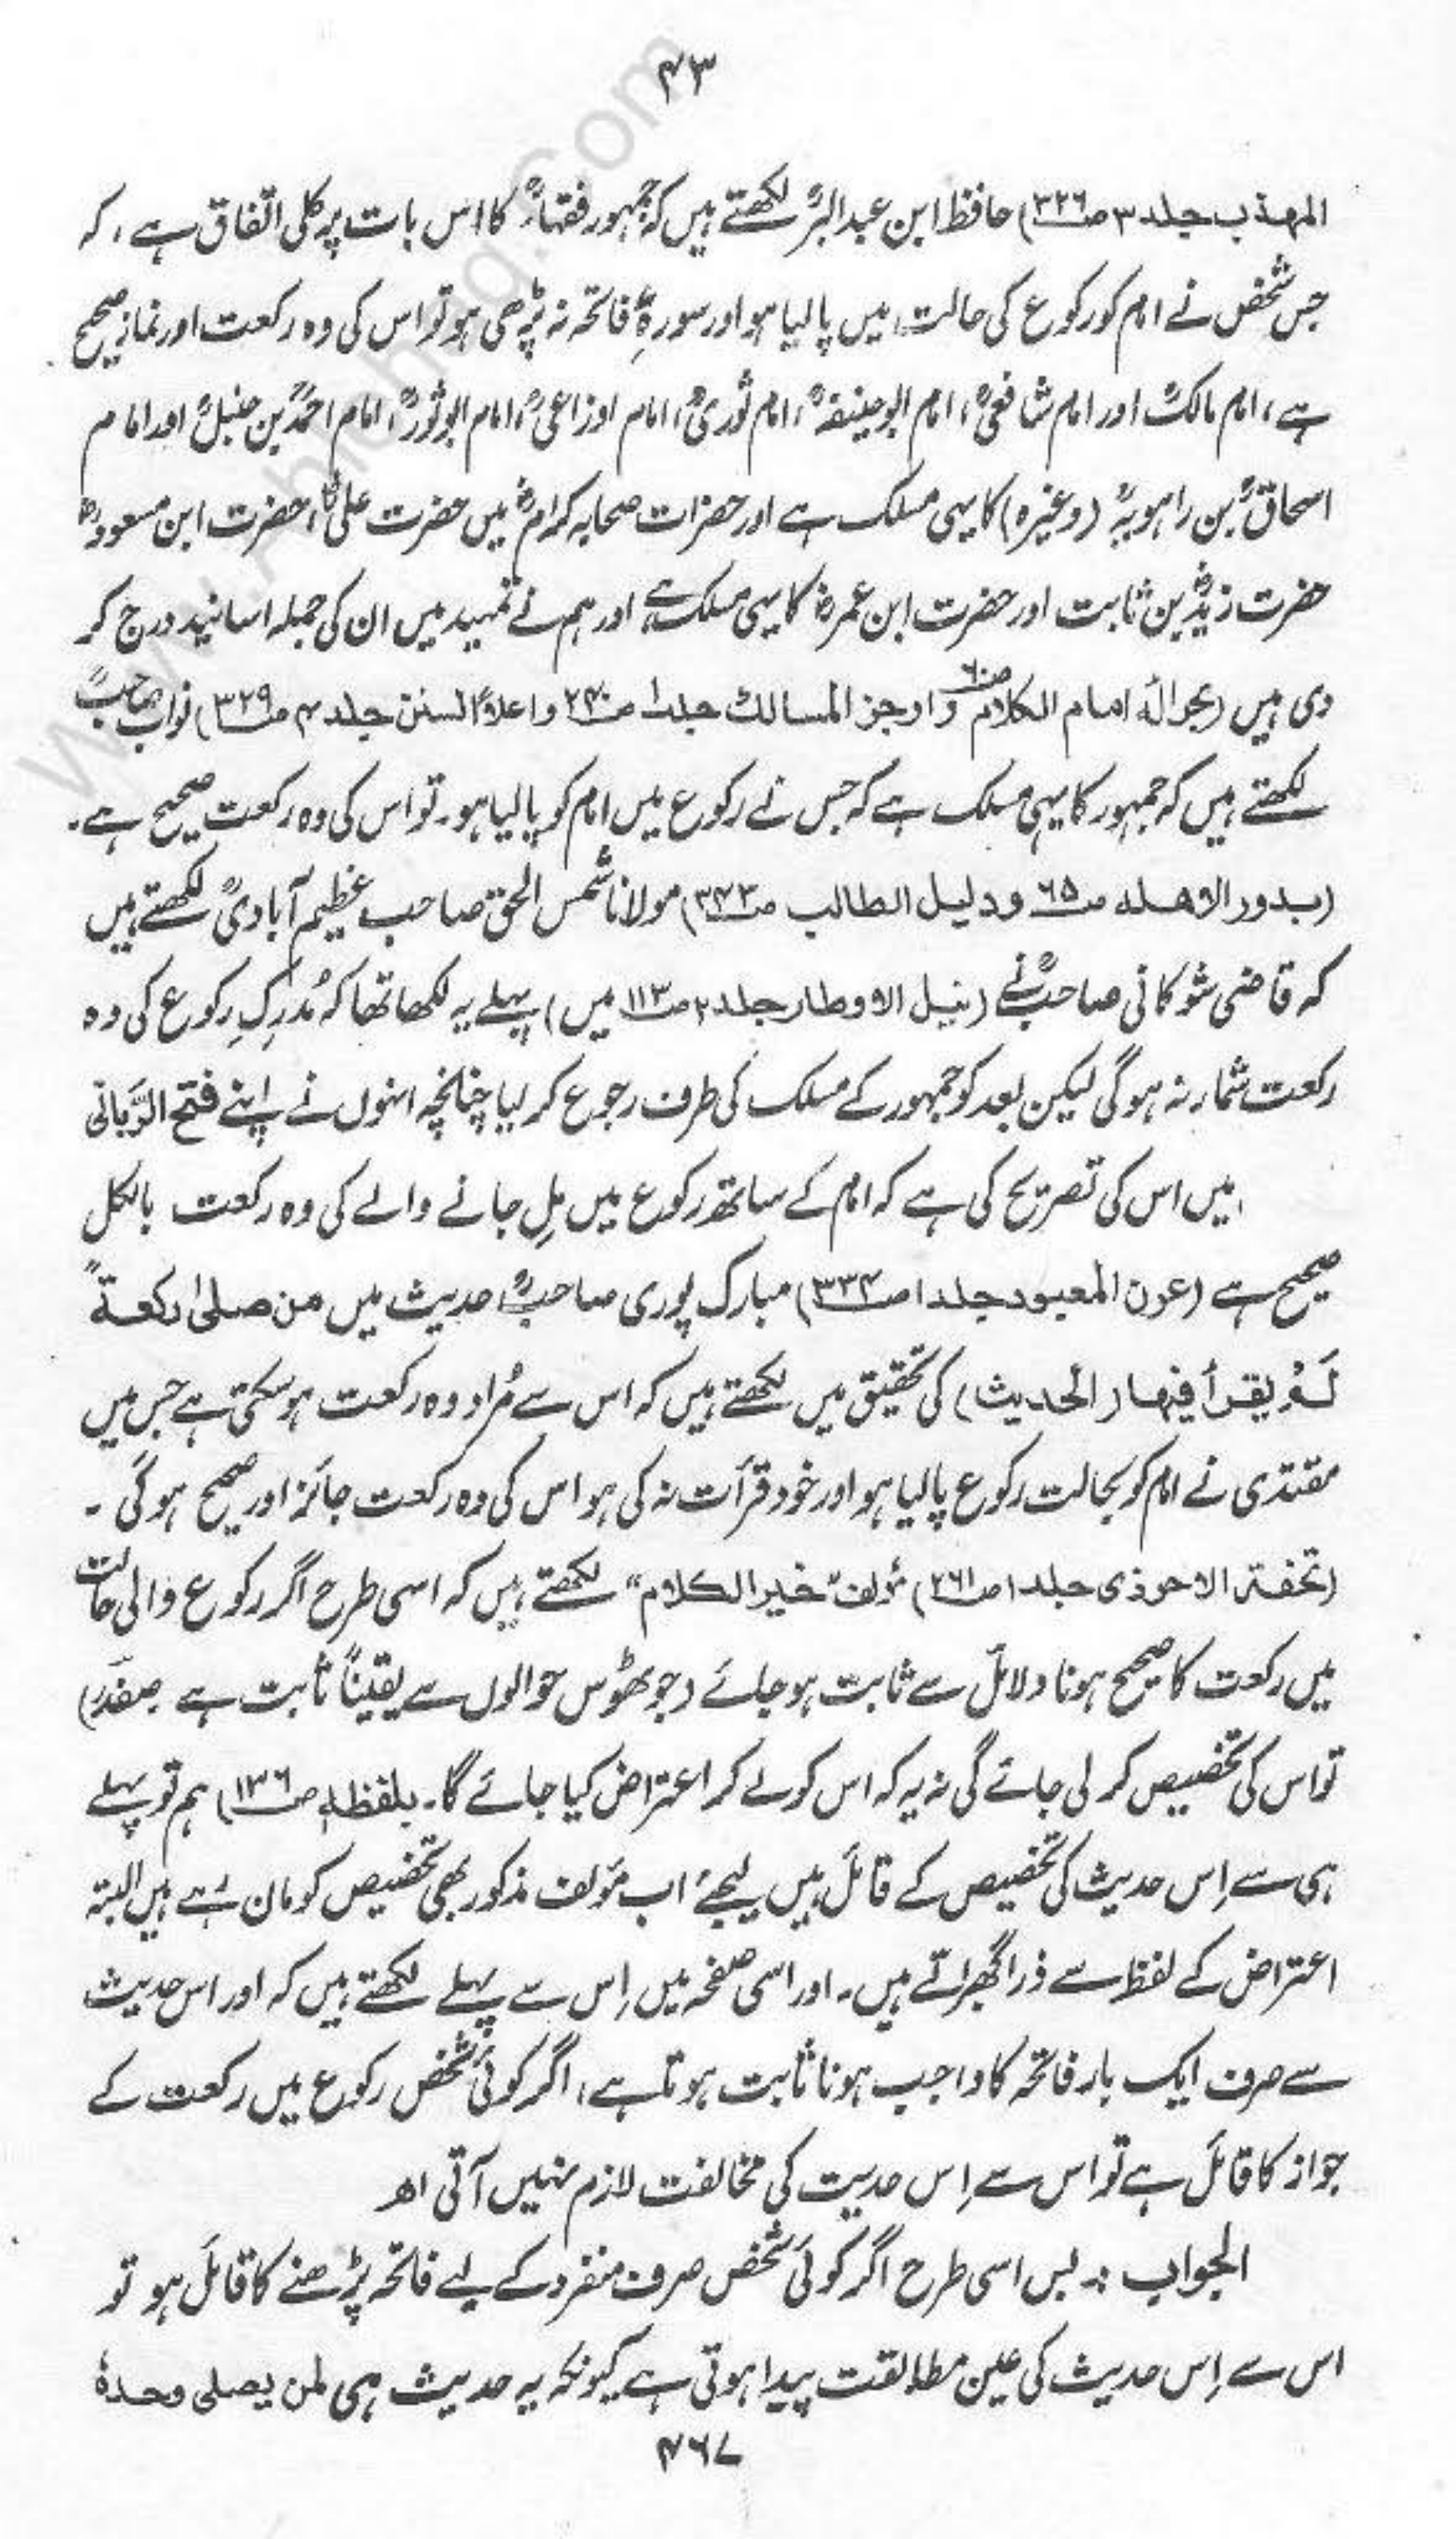 ۴۳
المہذب جلد ۳ ص۳۲۶) حافظ ابن عبدالبرؒ لکھتے ہیں کہ جمہور فقہاءؒ کا اس بات پر کلی اتفاق ہے، کہ
جس شخص نے امام کو رکوع کی حالت میں پالیا ہو اور سورۂ فاتحہ نہ پڑھی ہو تو اس کی وہ رکعت اور نماز صحیح
ہے، امام مالکؒ اور امام شافعیؒ، امام ابو حنیفہؒ، امام ثوریؒ، امام اوزاعیؒ، امام ابو ثورؒ، امام احمدؒ بن حنبلؒ اور امام
اسحاقؒ بن راہویہؒ (وغیرہ) کا یہی مسلک ہے اور حضرات صحابہ کرامؓ میں حضرت علیؓ، حضرت ابن مسعودؓ
حضرت زیدؓ بن ثابت اور حضرت ابن عمرؓ کا یہی مسلک ہے اور ہم نے تمہید میں ان کی جملہ اسانید درج کر
دی ہیں (بحوالہ امام الکلام ص۶۰ و اوجز المسالک جلد۱ ص۲۴۰ و اعلاء السنن جلد ۴ ص۳۲۹) نواب صاحبؒ
لکھتے ہیں کہ جمہور کا یہی مسلک ہے کہ جس نے رکوع میں امام کو پالیا ہو۔ تو اس کی وہ رکعت صحیح ہے۔
(بدور الاهله ص۶۵ و دلیل الطالب ص۳۴۳) مولانا شمس الحق صاحب عظیم آبادیؒ لکھتے ہیں
کہ قاضی شوکانی صاحبؒ نے (نیل الاوطار جلد ۲ ص۱۱۳ میں) پہلے یہ لکھا تھا کہ مُدرِکِ رکوع کی وہ
رکعت شمار نہ ہوگی لیکن بعد کو جمہور کے مسلک کی طرف رجوع کر لیا چنانچہ انہوں نے اپنے فتح الرّبانی
میں اس کی تصریح کی ہے کہ امام کے ساتھ رکوع میں مِل جانے والے کی وہ رکعت بالکل
صحیح ہے (عون المعبود جلد ۱ ص۳۳۴) مبارک پوری صاحبؒ حدیث میں من صلیٰ رکعۃً
لَمْ یقرأ فیھا (الحدیث) کی تحقیق میں لکھتے ہیں کہ اس سے مُراد وہ رکعت ہو سکتی ہے جس میں
مقتدی نے امام کو بحالت رکوع پالیا ہو اور خود قرأت نہ کی ہو اس کی وہ رکعت جائز اور صحیح ہوگی ۔
(تحفۃ الاحوذی جلد ۱ ص۲۶۱) مؤلف ”خیر الکلام“ لکھتے ہیں کہ اسی طرح اگر رکوع والی حالت
میں رکعت کا صحیح ہونا دلائل سے ثابت ہو جائے (جو ٹھوس حوالوں سے یقیناً ثابت ہے صفدرؔ)
تو اس کی تخصیص کر لی جائے گی نہ یہ کہ اس کو لے کر اعتراض کیا جائے گا۔ بلفظہٖ ص۱۳۶) ہم تو پہلے
ہی سے اِس حدیث کی تخصیص کے قائل ہیں لیجئے اب مؤلف مذکور بھی تخصیص کو مان رہے ہیں البتہ
اعتراض کے لفظ سے ذرا گھبراتے ہیں۔ اور اسی صفحہ میں اِس سے پہلے لکھتے ہیں کہ اور اس حدیث
سے صرف ایک بار فاتحہ کا واجب ہونا ثابت ہوتا ہے، اگر کوئی شخص رکوع میں رکعت کے
جواز کا قائل ہے تو اس سے اِس حدیث کی مخالفت لازم نہیں آتی اھ
الجواب :۔ بس اسی طرح اگر کوئی شخص صرف منفرد کے لیے فاتحہ پڑھنے کا قائل ہو تو
اس سے اِس حدیث کی عین مطابقت پیدا ہوتی ہے کیونکہ یہ حدیث ہی لمن یصلی وحدہٗ
۴۶۷
www.Ahlehaq.Com